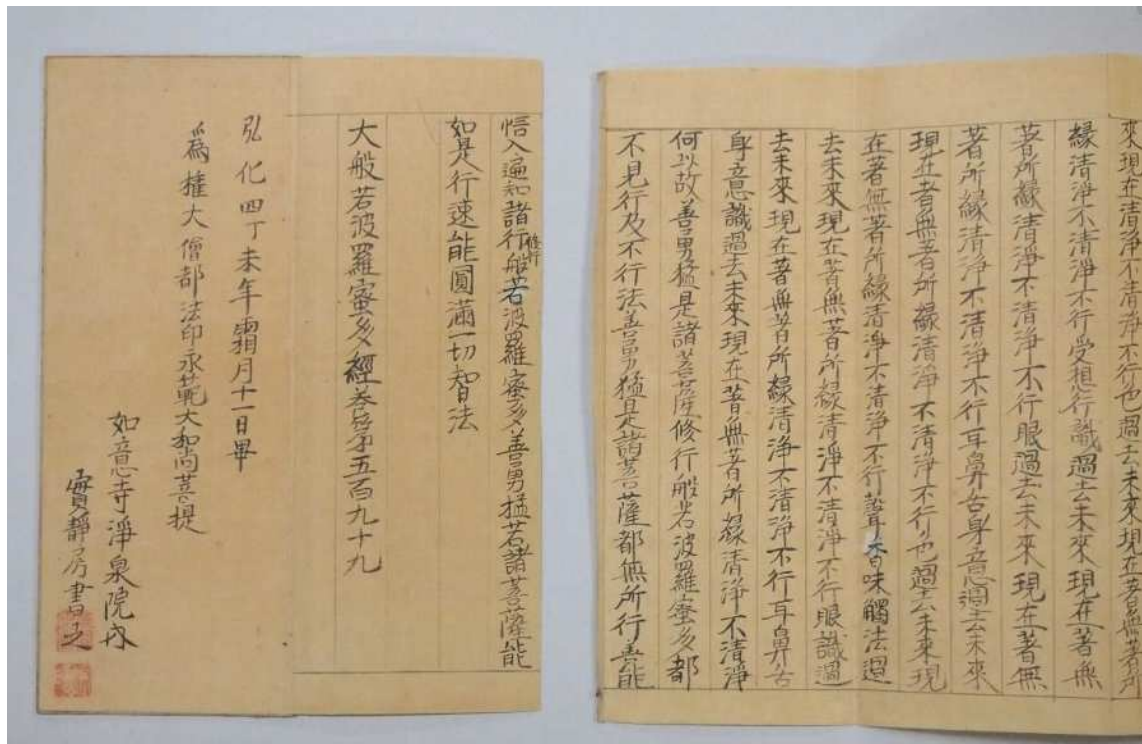 來現在清淨不清淨不行色過去未來現在著無著所
緣清淨不清淨不行受想行識過去未來現在著無
著所緣清淨不清淨不行眼過去未來現在著無
著所緣清淨不清淨不行耳鼻舌身意過去未來
現在著無著所緣清淨不清淨不行色過去未來現
在著無著所緣清淨不清淨不行聲香味觸法過
去未來現在著無著所緣清淨不清淨不行眼識過
去未來現在著無著所緣清淨不清淨不行耳鼻舌
身意識過去未來現在著無著所緣清淨不清淨
何以故善勇猛是諸菩薩修行般若波羅蜜多都
不見行及不行法善勇猛是諸菩薩都無所行善能
悟入遍知諸行修行般若波羅蜜多善勇猛若諸菩薩能
如是行速能圓滿一切智法
大般若波羅蜜多經卷第五百九十九
弘化四丁未年霜月十一日畢
為權大僧都法印永範大和尚菩提
如意寺淨泉院
實靜房書之